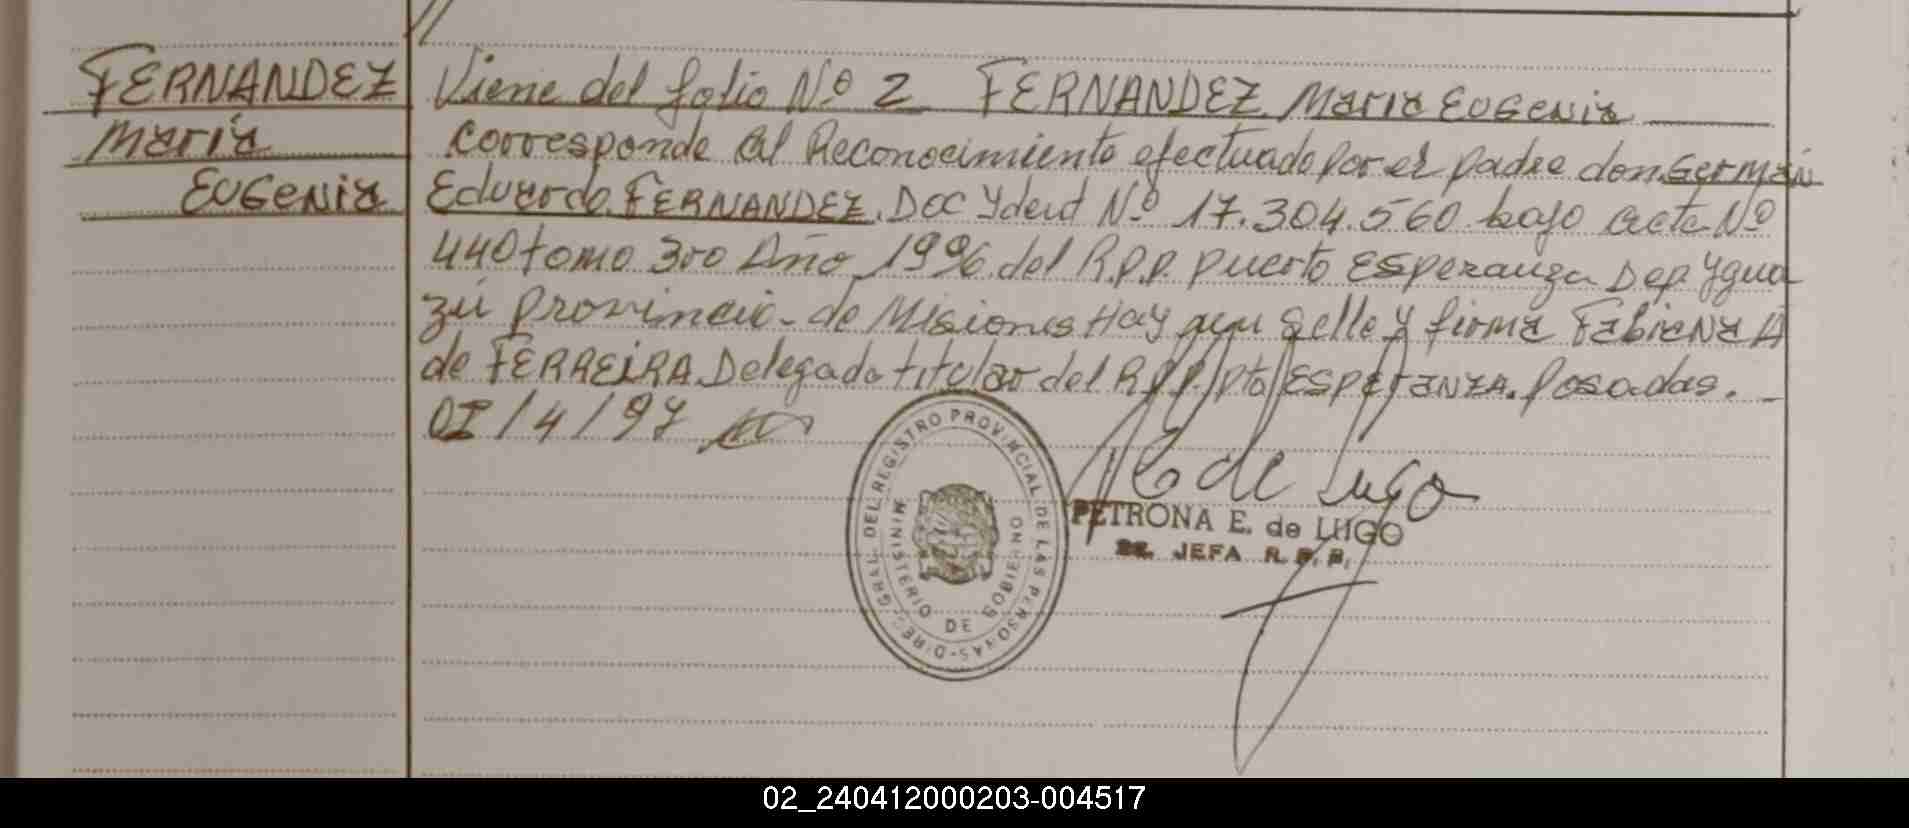 FERNANDEZ
María
Eugenia
Viene del folio Nº 2 FERNANDEZ María Eugenia
Corresponde al Reconocimiento efectuado por el padre don Germán
Eduardo FERNANDEZ. Doc Ydent Nº 17.304.560 bajo acta Nº
440 tomo 3ro Año 1996 del R.P.P. Puerto Esperanza Dep Ygua
zú Provincia de Misiones Hay aqu Sello y firma Fabiana A
de FERREIRA Delegada titular del R.P.P. Pto ESPERANZA. Posadas.
02/4/97
DIREC. GRAL. DEL REGISTRO PROVINCIAL DE LAS PERSONAS
MINISTERIO DE GOBIERNO
de Lugo
PETRONA E. de LUGO
JEFA R.P.P.
02_240412000203-004517